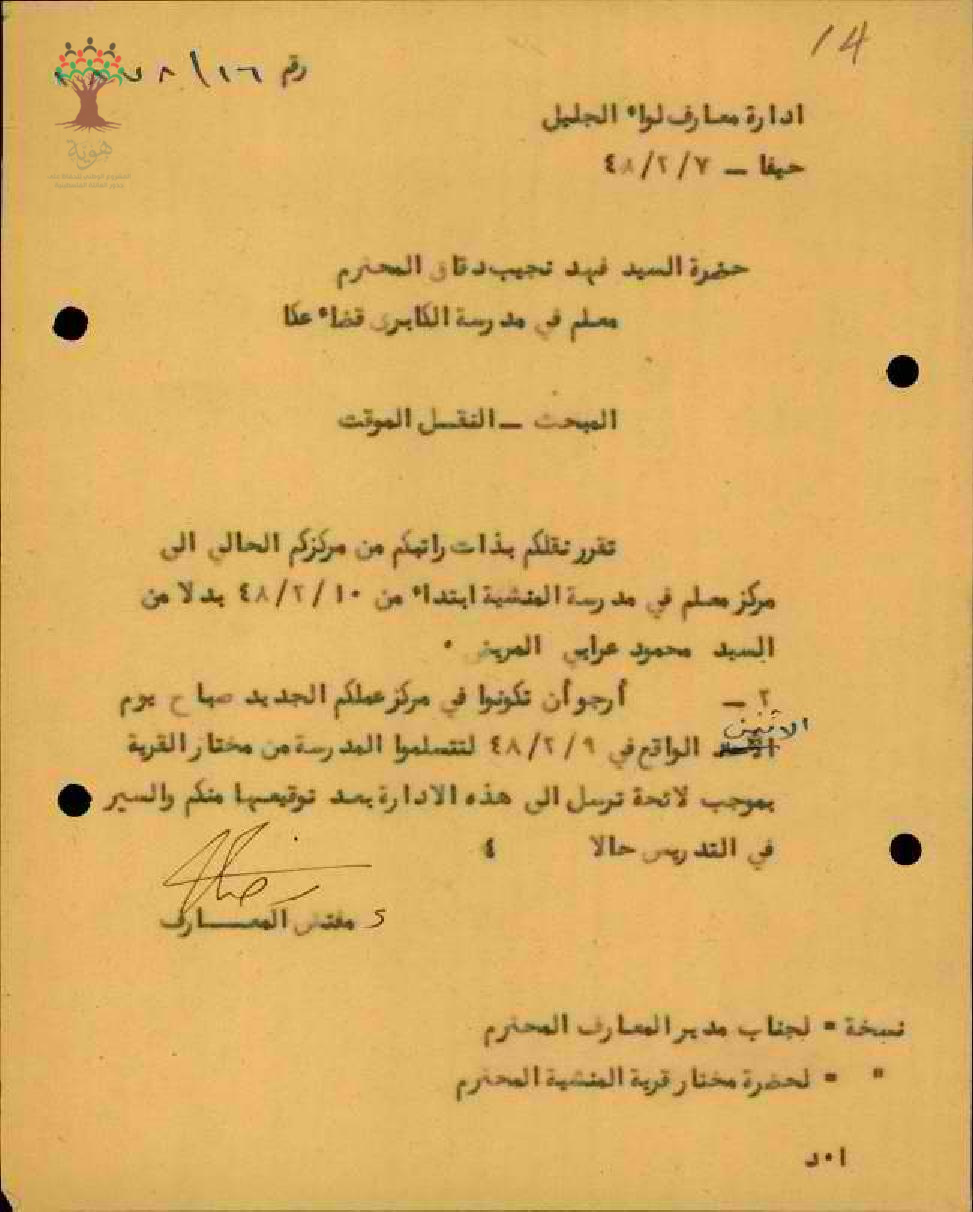 14
رقم
هوية
ادارة معارف لواء الجليل
حيفا – ٤٨/٢/٧
حضرة السيد فهد نجيب دقاق المحترم
معلم في مدرسة الكابري قضاء عكا
المبحث – النقل الموقت
تقرر نقلكم بذات راتبكم من مركزكم الحالي الى
مركز معلم في مدرسة المنشية ابتداء من ٤٨/٢/١٠ بدلا من
السيد محمود عرابي المريض .
٢ – أرجو أن تكونوا في مركز عملكم الجديد صباح يوم
الاثنين
الاحد الواقع في ٤٨/٢/٩ لتتسلموا المدرسة من مختار القرية
بموجب لائحة ترسل الى هذه الادارة بعد توقيعها منكم والسير
في التدريس حالا ٤
مفتش المعـــارف
نسخة = لجناب مدير المعارف المحترم
" = لحضرة مختار قرية المنشية المحترم
ا.د